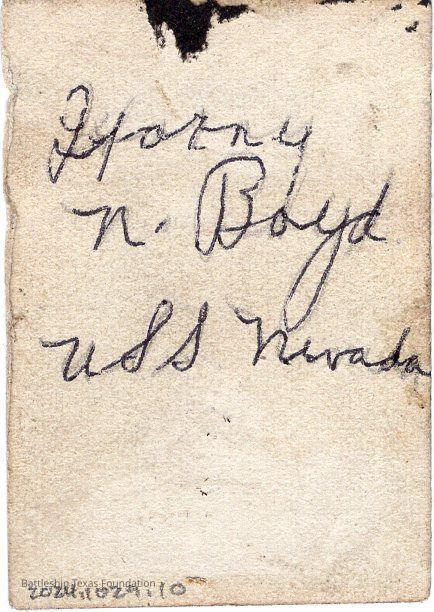 Harry
N. Boyd
USS Nevada
Battleship Texas Foundation
2024.1029.10